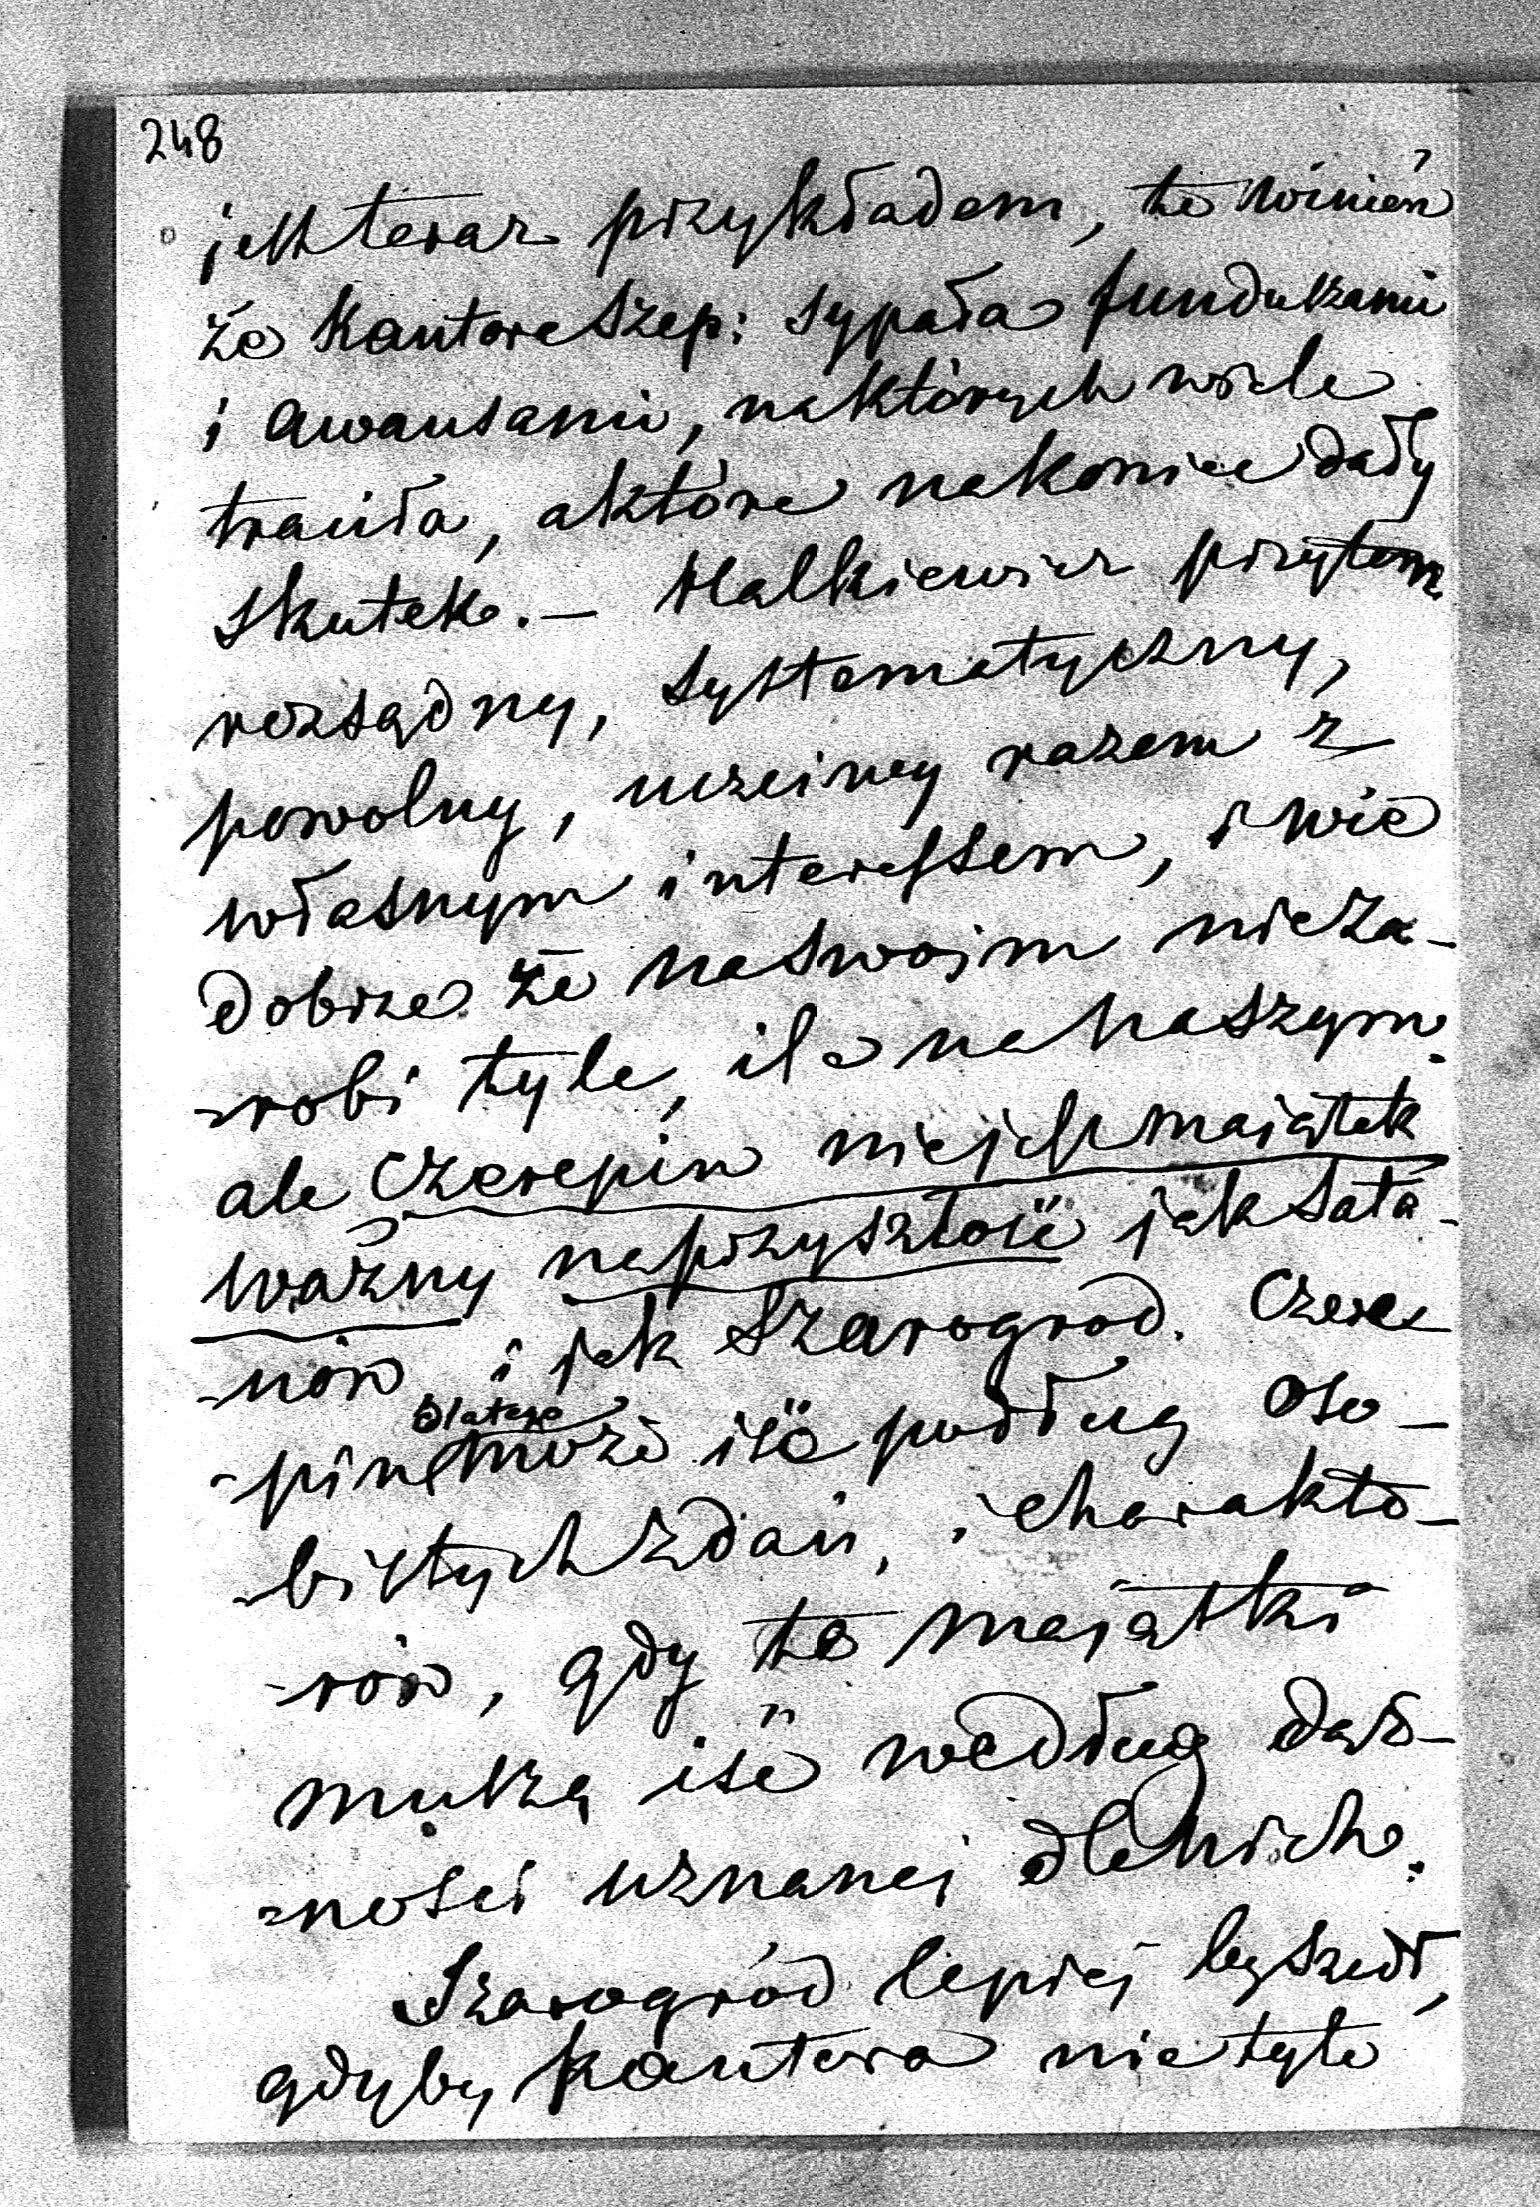 248
jest teraz przykładem, to winien
że Kantora Szep: sypała funduszami
i awansami, na których wiele
traciła, a które nakoniec dały
skutek. — Malkiewicz przytem
rozsądny, systematyczny,
powolny, uczciwy razem z
własnym interessem, i wie
dobrze że na swoim nieza-
-robi tyle, ile na naszym.
ale Czerepin nie jest majątek
ważny na przyszłość jak Sata-
-nów i jak Szarogrod. Czere-
dlatego
-pin może iść podług oso-
-bistych zdań, i charakte-
-rów, gdy te majątki
muszą iść według dąż-
-ności uznanej dla nich.
Szarogród lepiej by szedł,
gdyby Kantora nie tyle